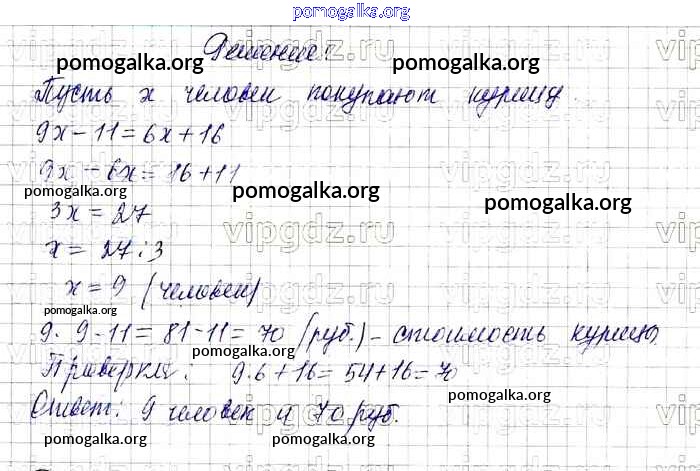 pomogalka.org
Решение:
pomogalka.org pomogalka.org
vipgdz.ru
Пусть x человек покупают курицу.
9x - 11 = 6x + 16
9x - 6x = 16 + 11
pomogalka.org pomogalka.org
pomogalka.org
3x = 27
vipgdz.ru
x = 27 : 3
x = 9 (человек)
pomogalka.org
9 · 9 - 11 = 81 - 11 = 70 (руб.) - стоимость курицы.
pomogalka.org
Проверка: 9 · 6 + 16 = 54 + 16 = 70
pomogalka.org
Ответ: 9 человек и 70 руб.
pomogalka.org
pomogalka.org